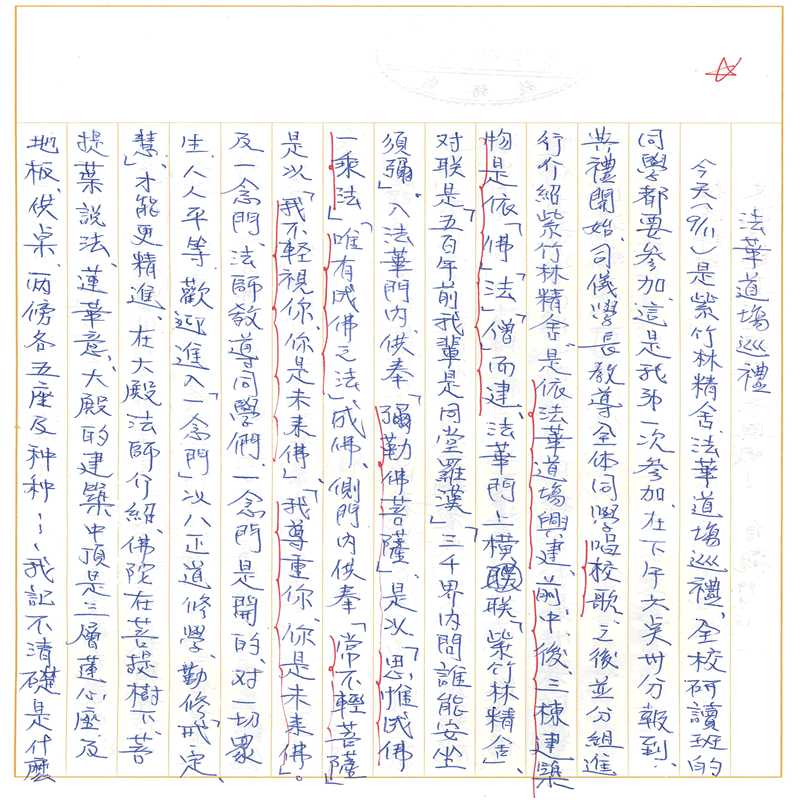 法華道場巡禮
今天(9/11)是紫竹林精舍、法華道塲巡禮、全校研讀班的
同學都要參加、這是我第一次參加、在下午六奌卅分報到、
典禮開始、司儀學長教導全体同學唱校歌、之後並分組進
行介紹紫竹林精舍、是依法華道塲興建、前、中、後、三棟建築
物是依「佛」「法」「僧」而建、法華門上横聯「紫竹林精舍」、
对联是「五百年前我輩是同堂羅漢」「三千界內問誰能安坐
須彌」入法華門內、供奉「彌勒佛菩薩」、是以「思惟成佛
一乘法」「唯有成佛之法」成佛、側門內供奉「常不輕菩薩」
是以「我不輕視你、你是未来佛」、「我尊重你、你是未来佛」。
及一念門、法師教導同學們、一念門是開的、对一切眾
生、人人平等、歡迎進入「一念門」以八正道修學、勤修「戒、定、
慧」、才能更精進、在大殿法師介紹、佛陀在菩提樹下、菩
提葉説法、蓮華意、大殿的建築中頂是三層蓮心座、及
地板、供桌、兩傍各五座及种种~~、我記不清礎是什麼